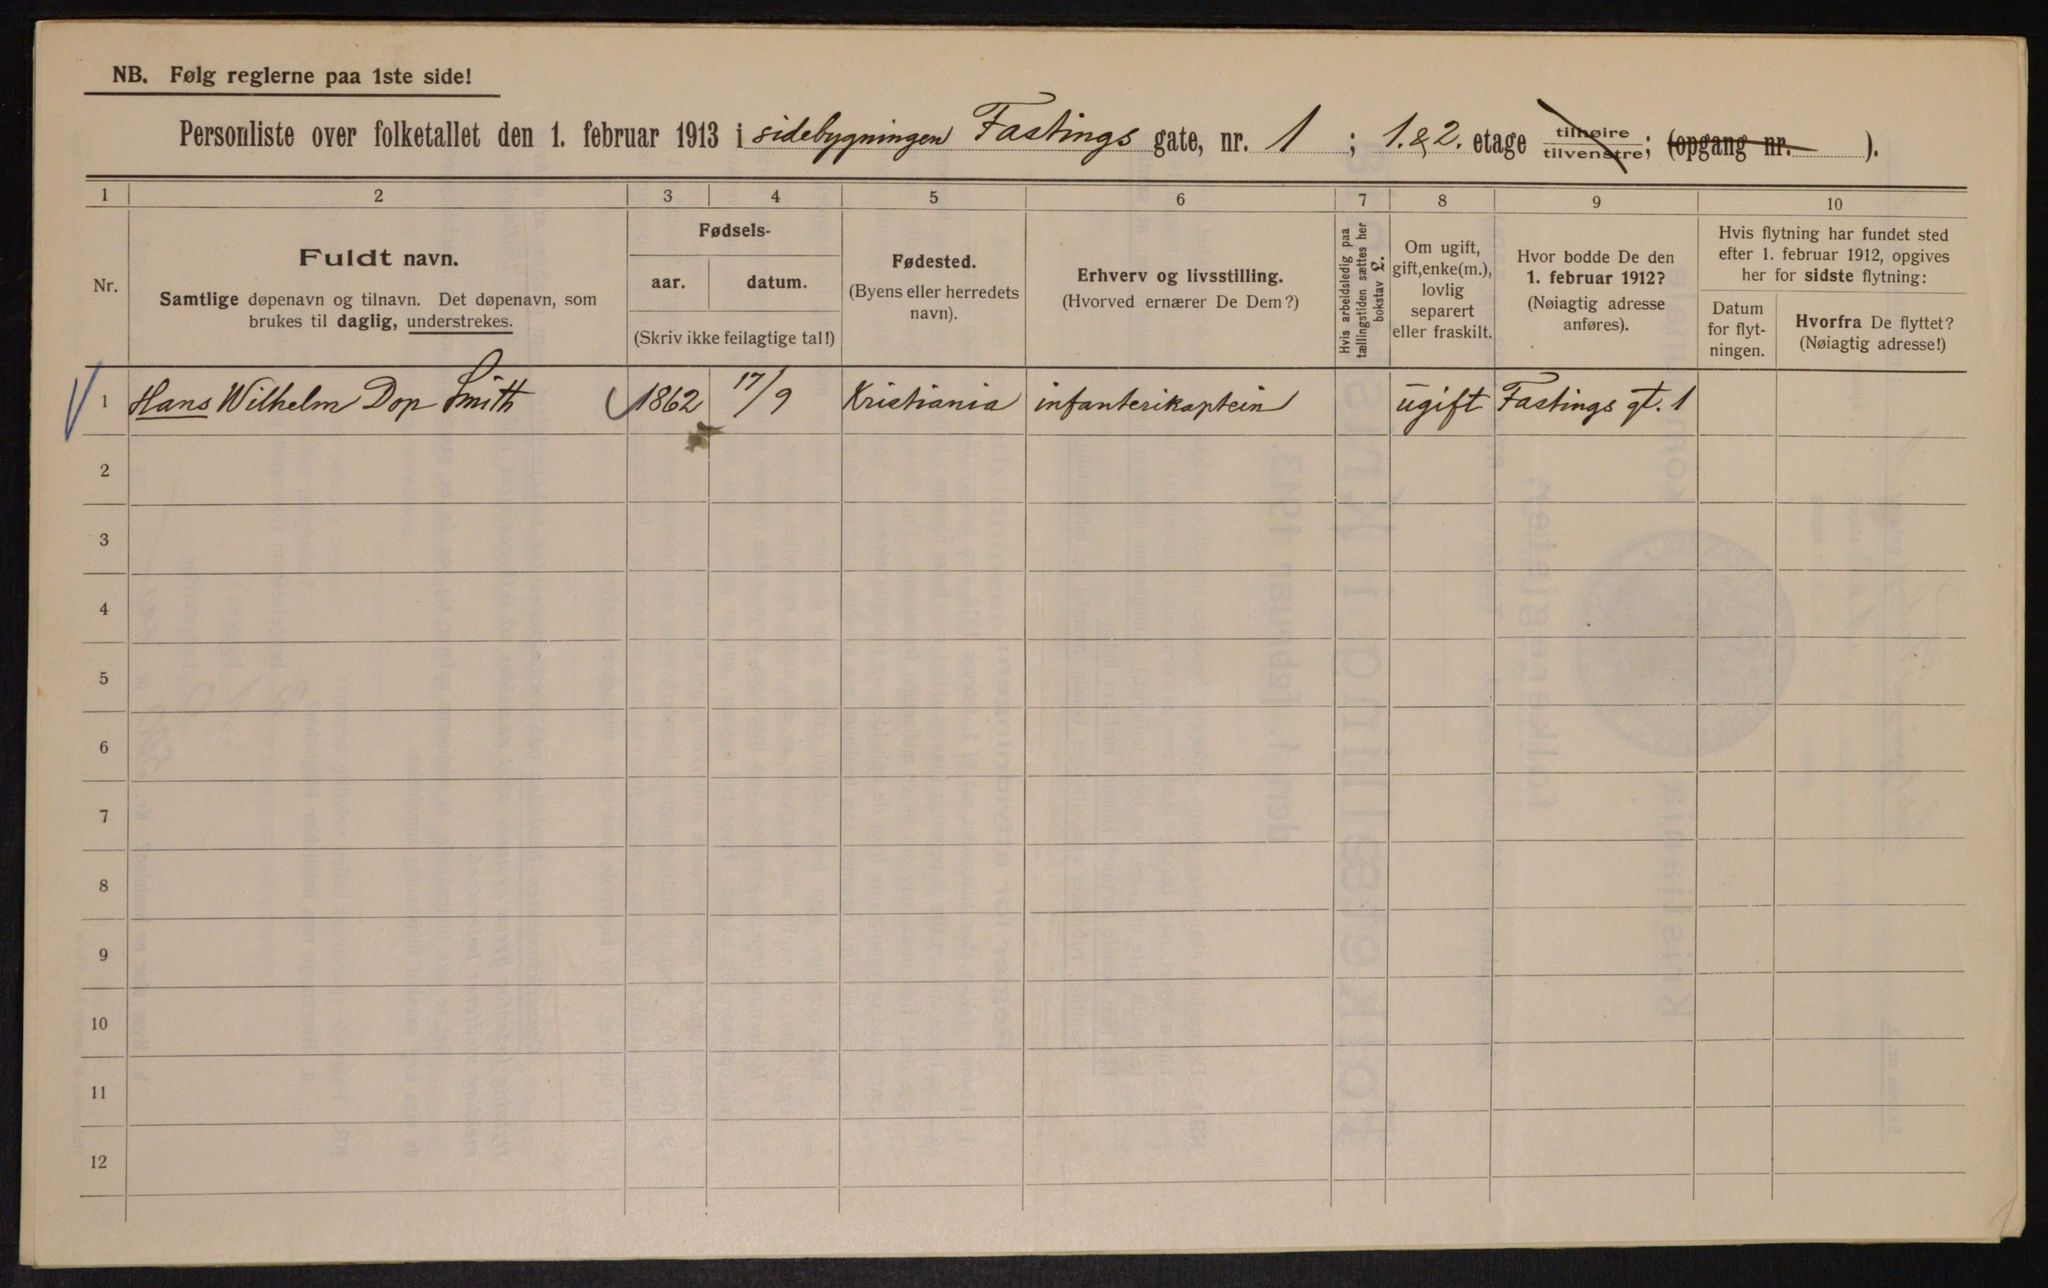 NB. Følg reglerne paa 1ste side!
Personliste over folketallet den 1. februar 1913 i sidebygningen Fastings gate, nr. 1 ; 1. & 2. etage tilhøire tilvenstre; (opgang nr. ).
1 2 3 4 5 6 7 8 9 10
Nr.
Fuldt navn.
Samtlige døpenavn og tilnavn. Det døpenavn, som
brukes til daglig, understrekes.
Fødsels-
aar. datum.
(Skriv ikke feilagtige tal!)
Fødested.
(Byens eller herredets
navn).
Erhverv og livsstilling.
(Hvorved ernærer De Dem?)
Hvis arbeidsledig paa
tællingstiden sættes her
bokstav L.
Om ugift,
gift, enke(m.),
lovlig
separert
eller fraskilt.
Hvor bodde De den
1. februar 1912?
(Nøiagtig adresse
anføres).
Hvis flytning har fundet sted
efter 1. februar 1912, opgives
her for sidste flytning:
Datum
for flyt-
ningen.
Hvorfra De flyttet?
(Nøiagtig adresse!)
1 Hans Wilhelm Dop Smith 1862 17/9 Kristiania infanterikaptein ugift Fastings gt. 1
2
3
4
5
6
7
8
9
10
11
12